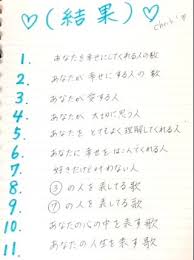 ♡(結果)♡ Check!
1. あなたを幸せにしてくれる人の数
2. あなたが幸せにする人の数
3. あなたが愛する人
4. あなたが大切に思う人
5. あなたをとてもよく理解してくれる人
6. あなたに幸せをはこんでくれる人
7. 好きだけど叶わない人
8. ③の人を表してる歌
9. ⑦の人を表してる歌
10. あなたの心の中を表す歌
11. あなたの人生を表す歌